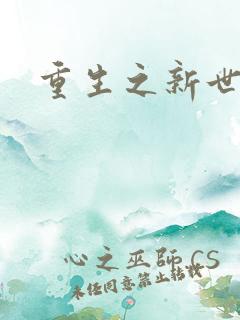 重生之新世
心之巫師 CS
未任同意禁止轉載